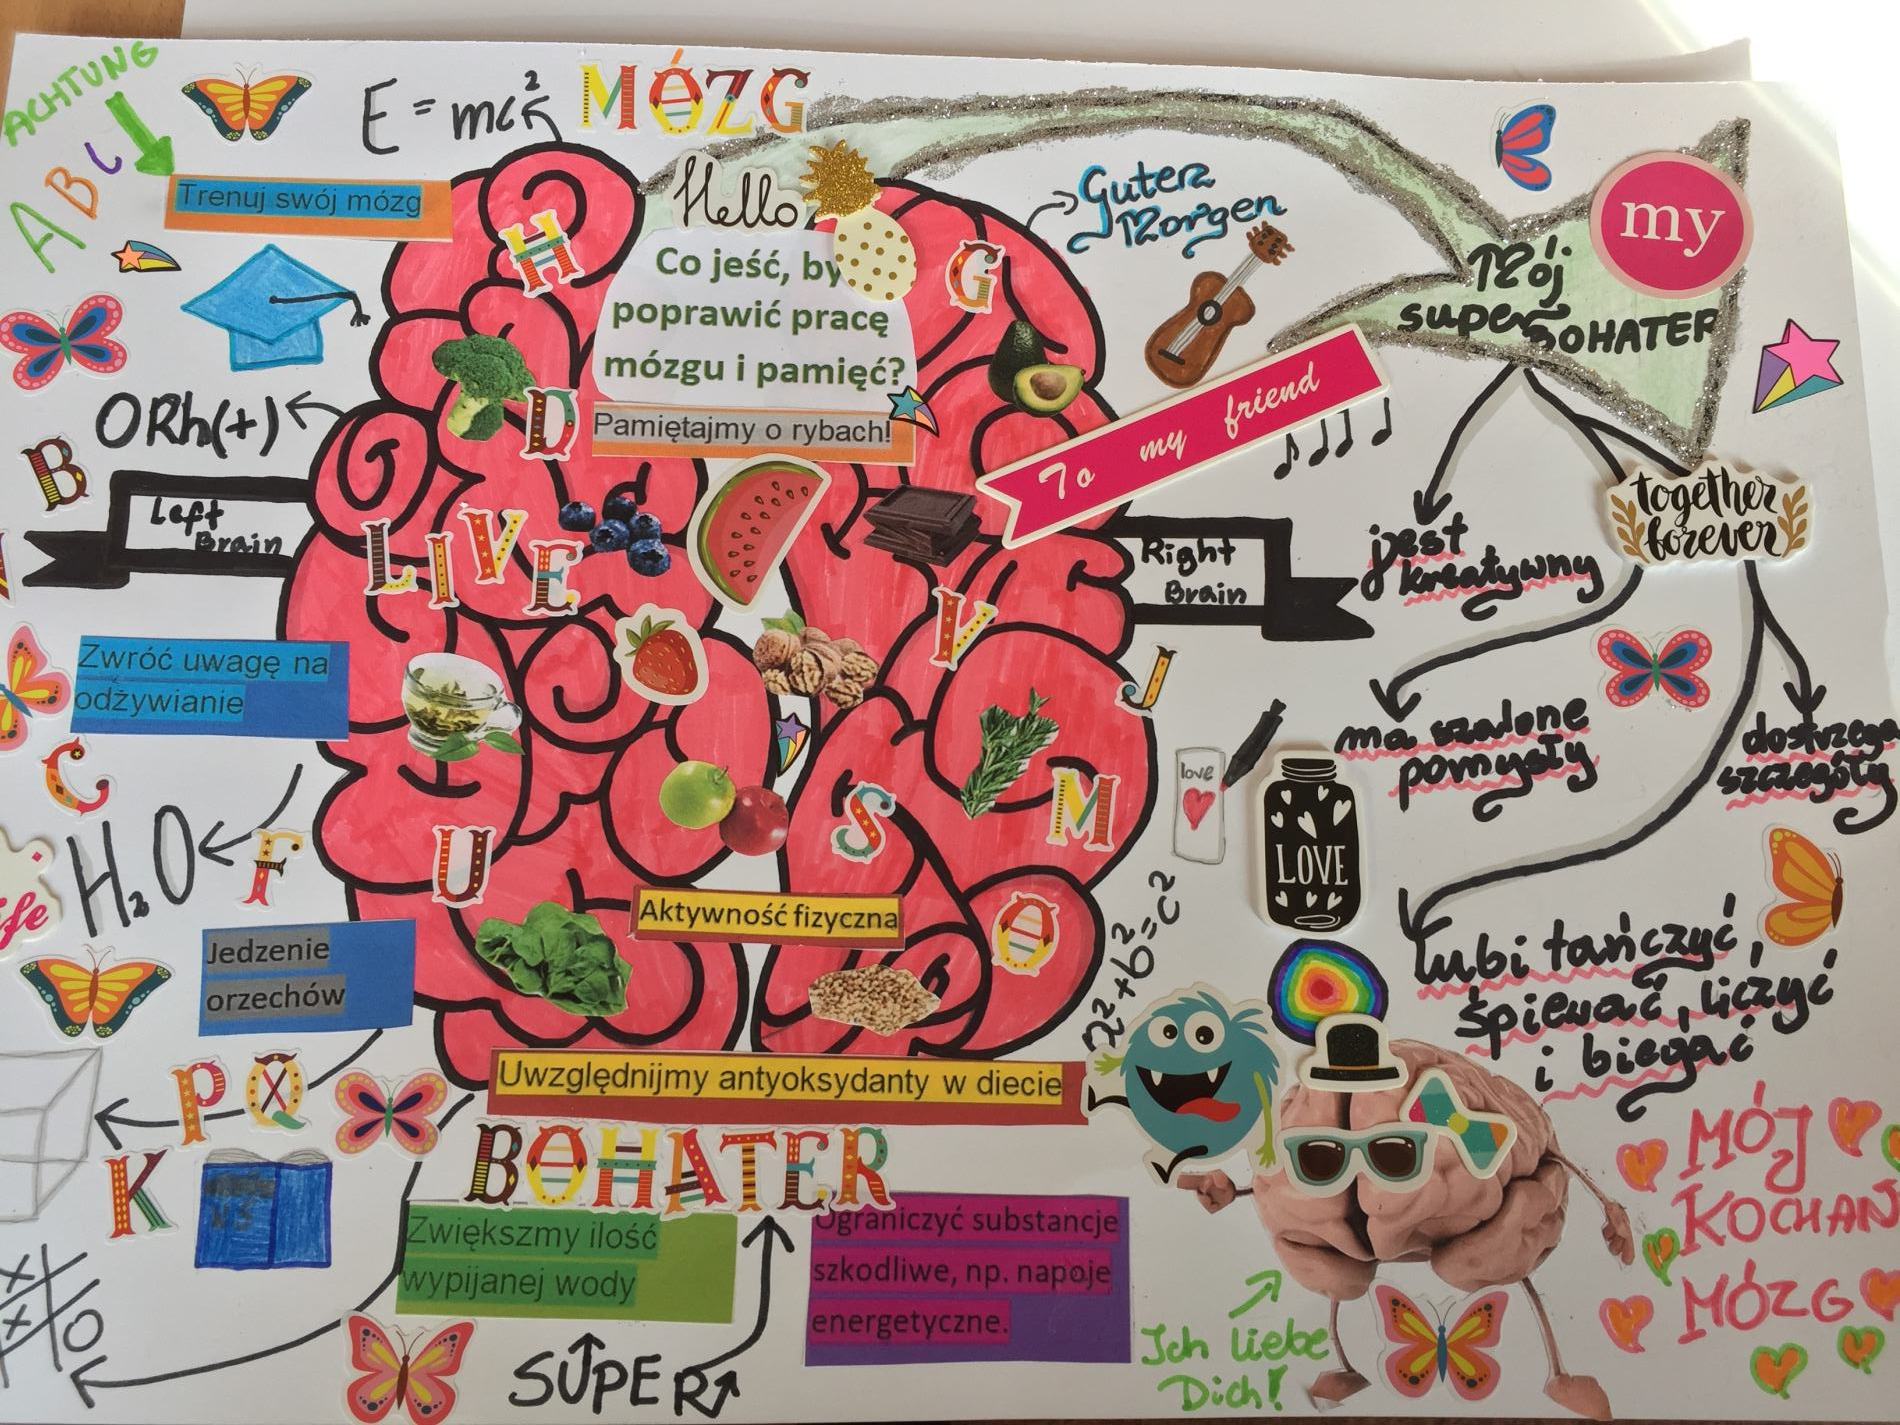 ACHTUNG
ABC
Trenuj swój mózg
E = mc²
MÓZG
Hello
Co jeść, by
poprawić pracę
mózgu i pamięć?
Pamiętajmy o rybach!
H
G
D
Guten
Morgen
my
Mój
super
BOHATER
To my friend
together
forever
ORh(+)
B
Left
Brain
LIVE
Right
Brain
V
J
jest
kreatywny
ma szalone
pomysły
dostrzega
szczegóły
Zwróć uwagę na
odżywianie
C
H₂O
F
U
S
M
O
love
LOVE
a²+b²=c²
lubi tańczyć,
śpiewać, liczyć
i biegać
Aktywność fizyczna
Jedzenie
orzechów
Uwzględnijmy antyoksydanty w diecie
P
Q
K
BOHATER
Zwiększmy ilość
wypijanej wody
Ograniczyć substancje
szkodliwe, np. napoje
energetyczne.
SUPER
Ich liebe
Dich!
MÓJ
KOCHAN
MÓZG